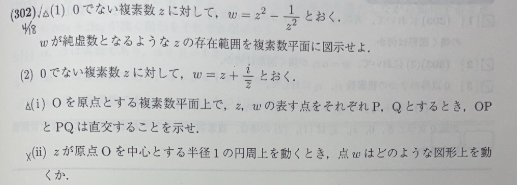 (302) △(1) 0でない複素数zに対して，w＝z²－1/z² とおく．
4/8
wが純虚数となるようなzの存在範囲を複素数平面に図示せよ．
(2) 0でない複素数zに対して，w＝z＋i/z̄ とおく．
△(i) Oを原点とする複素数平面上で，z，wの表す点をそれぞれP，Qとするとき，OP
とPQは直交することを示せ．
×(ii) zが原点Oを中心とする半径1の円周上を動くとき，点wはどのような図形上を動
くか．